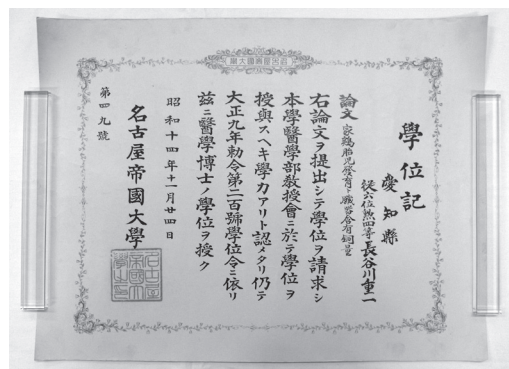 學大國帝屋古名
學位記
愛知縣
從六位勲四等 長谷川重一
論文 家鷄胎兒發育ト臓器含有銅量
右論文ヲ提出シテ學位ヲ請求シ
本學醫學部敎授會ニ於テ學位ヲ
授與スヘキ學力アリト認メタリ仍テ
大正九年勅令第二百號學位令ニ依リ
茲ニ醫學博士ノ學位ヲ授ク
昭和十四年十一月廿四日
名古屋帝國大學
第四九號